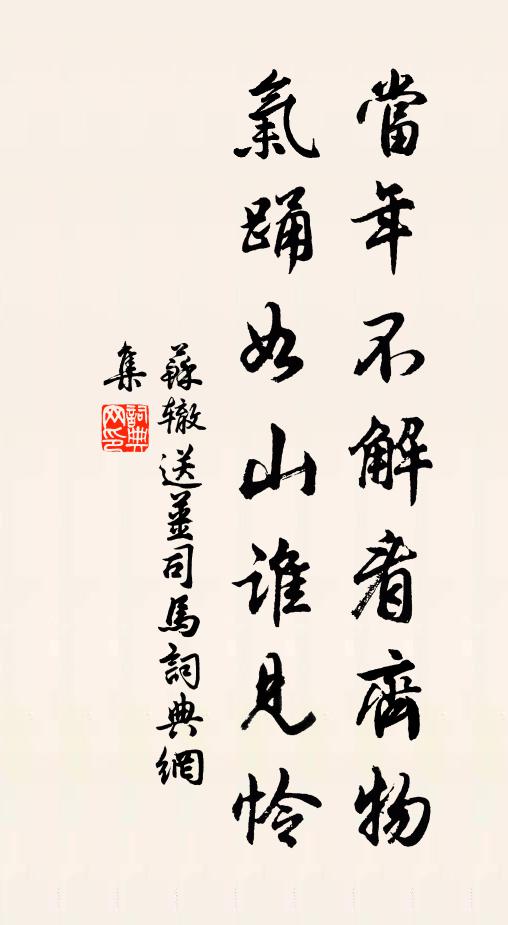 當年不解看齊物
氣踊如山誰見憐
蘇辙送薑司馬詞典網
集
詞典
网印